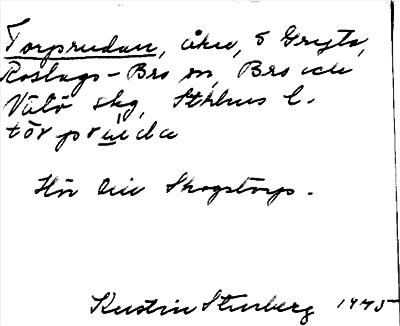 Torprudan, åker, S Gryta,
Roslags-Bro sn, Bro och
Vätö skg, Sthlms l.
tòrprúda
Hör till Skogstorp.
Kerstin Sturberg 1945